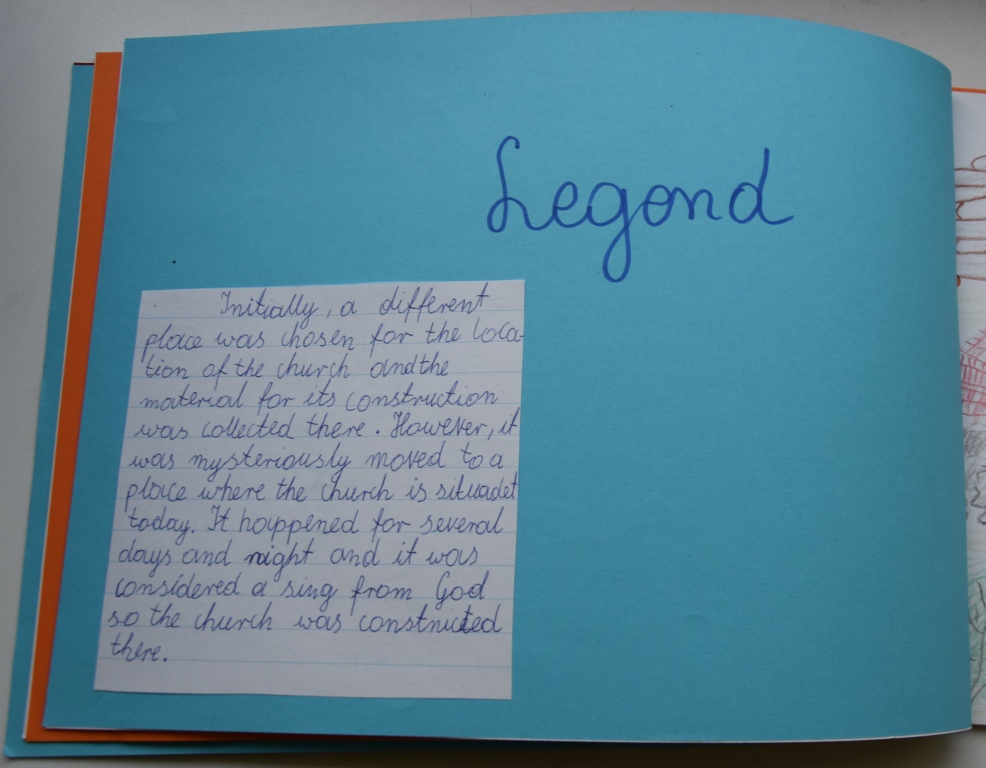 Legend
Initially, a different
place was chosen for the loca-
tion of the church and the
material for its construction
was collected there. However, it
was mysteriously moved to a
place where the church is situadet
today. It happened for several
days and night and it was
considered a sing from God
so the church was constructed
there.